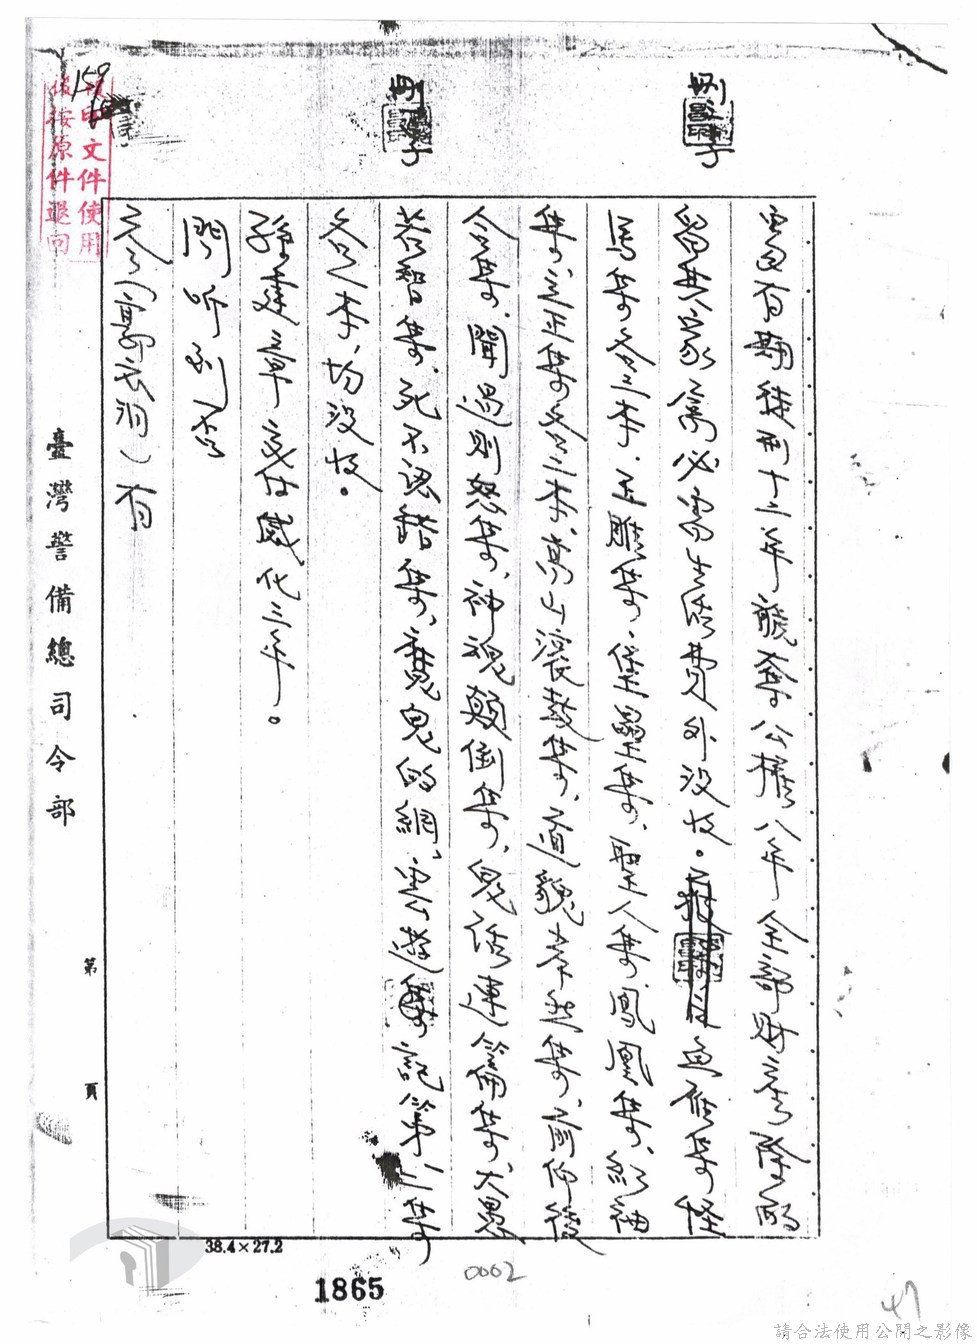 159
複印文件使用
後按原件退回
刪 子
刪 子
處有期徒刑十二年褫奪公權八年全部財產除酌
留其家屬必需生活費外沒收。 魚雁集、怪
馬集各二本、玉雕集、堡壘集、聖人集、鳳凰集、紅袖
集、立正集各二本、高山滾鼓集、道貌岸然集、前仰後
合集、聞過則怒集、神魂顛倒集、鬼話連篇集、大愚
若智集、死不認錯集、魔鬼的網、雲遊記第一二集
各一本、均沒收。
孫建章交付感化三年。
問 听到否
天、(郭衣洞)有
臺灣警備總司令部
第 頁
38.4×27.2
1865
0002
47
請合法使用公開之影像